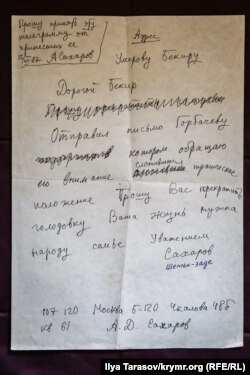 Прошу принять эту
телеграмму от
принесшего ее
АСахаров
Адрес
Умерову Бекиру
Дорогой Бекир
Отправил письмо Горбачеву
котором обращаю
сложившееся
его внимание трагическое
положение Прошу Вас прекратить
голодовку Ваша жизнь нужна
народу семье Уважением
Сахаров
107 120 Москва Б-120 Чкалова 48б
кв 61 А.Д. Сахаров
Ilya Tarasov/krymr.org (RFE/RL)